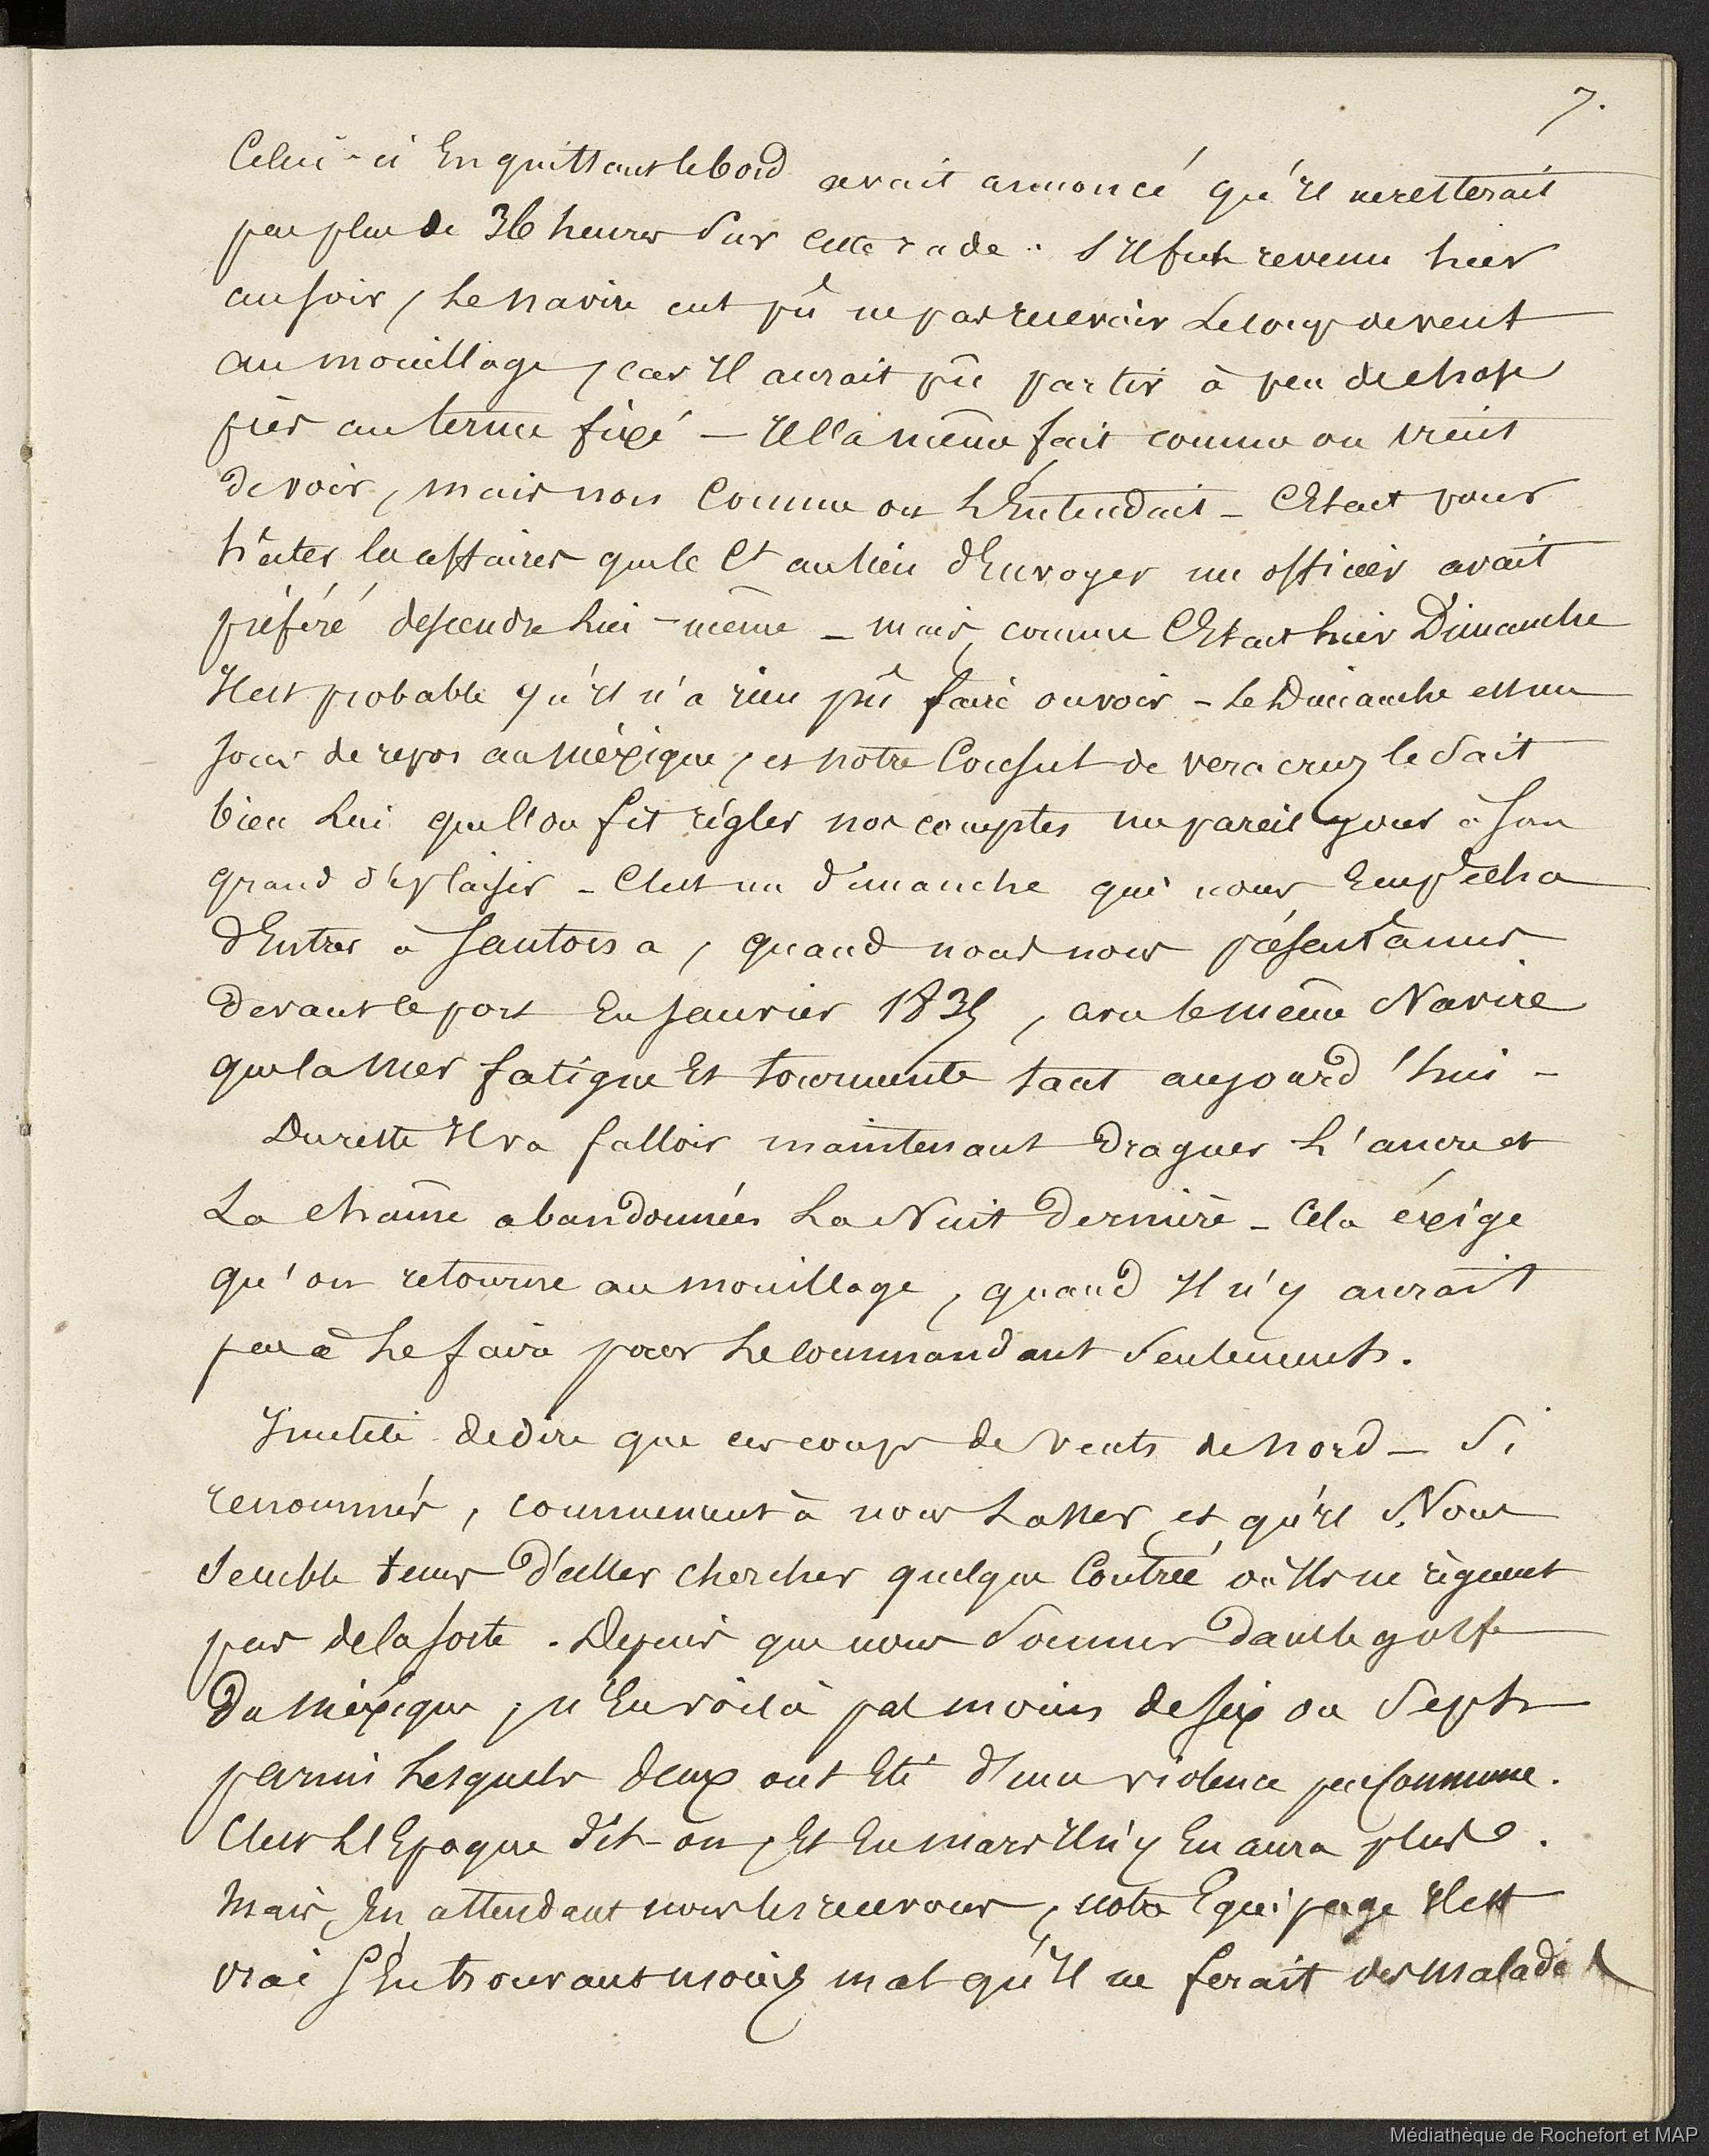 7.
Celui-ci En quittant le bord avait annoncé qu'Il ne resterait
pas plus de 36 heures Sur cette rade. S'Il fut revenu hier
au soir, Le navire eut pû ne pas recevoir Le coup de vent
au mouillage, car Il aurait pû partir à peu de chose
près au terme fixé — Il l'a même fait comme on vient
de voir, mais non Comme on L'Entendait — C'Etait pour
hâter les affaires que le Ct au lieu d'Envoyer un officier avait
préféré descendre Lui-même — mais, comme C'Etait hier Dimanche
Il est probable qu'Il n'a rien pû faire ou voir — Le Dimanche est un
jour de repos au Méxique, et notre Consul de Vera cruz le Sait
bien Lui que l'on fit règler nos comptes un pareil jour à son
grand déplaisir — C'est un dimanche qui nous Empêcha
d'Entrer à Santona, quand nous nous présentâmes
devant le port En Janvier 1835, avec le même Navire
que la Mer fatigue Et tourmente tant aujourd'hui —
Du reste Il va falloir maintenant Draguer L'ancre et
La chaîne abandonnées La Nuit Dernière — Cela éxige
qu'on retourne au mouillage, quand Il n'y aurait
pas à Le faire pour Le commandant Seulement.
Inutile de dire que ces coups de vents de Nord — Si
renommés, commencent à nous Lasser et qu'Il Nous
Semble tems D'aller chercher quelque Contrée où Ils ne règnent
pas de la sorte. Depuis que nous Sommes Dans le golfe
Du Méxique, n'En voilà pas moins de six ou Sept
parmi Lesquels deux ont Eté d'une violence peu Commune.
C'est L'Epoque dit-on, Et En mars Il n'y En aura plus.
Mais, En attendant nous les recevons, notre Equipage Il est
vrai S'En trouvant moins mal qu'Il ne ferait des Malades
Médiathèque de Rochefort et MAP